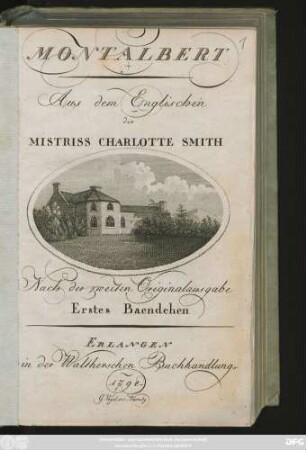 1
MONTALBERT
Aus dem Englischen
der
MISTRISS CHARLOTTE SMITH
Nach der zweiten Originalausgabe
Erstes Baendchen
ERLANGEN
in der Waltherschen Buchhandlung
DFG